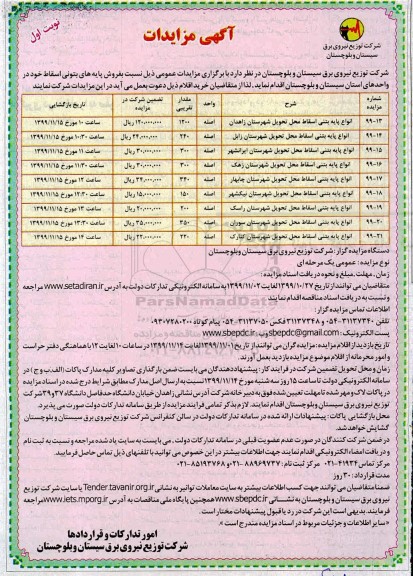 آگهی مزایدات
نوبت اول
شرکت توزیع نیروی برق
سیستان وبلوچستان
شرکت توزیع نیروی برق سیستان وبلوچستان در نظر دارد با برگزاری مزایدات عمومی ذیل نسبت بفروش پایه های بتونی اسقاط خود در
واحدهای استان سیستان وبلوچستان اقدام نماید. لذا از متقاضیان خرید اقلام ذیل دعوت بعمل می آید در این مزایدات شرکت نمایند
شماره مزایده شرح واحد مقدار تقریبی تضمین شرکت در مزایده تاریخ بازگشایی
۹۹-۱۳ انواع پایه بتنی اسقاط محل تحویل شهرستان زاهدان اصله ۱۲۰۰ ۱۲۰,۰۰۰,۰۰۰ ریال ساعت ۱۰ مورخ ۱۳۹۹/۱۱/۱۵
۹۹-۱۴ انواع پایه بتنی اسقاط محل تحویل شهرستان زابل اصله ۲۲,۰۰۰,۰۰۰ ریال ساعت ۱۰:۳۰ مورخ ۱۳۹۹/۱۱/۱۵
۹۹-۱۵ انواع پایه بتنی اسقاط محل تحویل شهرستان ایرانشهر اصله ۳۰۰ ۳۰,۰۰۰,۰۰۰ ریال ساعت ۱۱ مورخ ۱۳۹۹/۱۱/۱۵
۹۹-۱۶ انواع پایه بتنی اسقاط محل تحویل شهرستان زهک اصله ۳۰۰ ۳۰,۰۰۰,۰۰۰ ریال ساعت ۱۱:۳۰ مورخ ۱۳۹۹/۱۱/۱۵
۹۹-۱۷ انواع پایه بتنی اسقاط محل تحویل شهرستان چابهار اصله ساعت ۱۲ مورخ ۱۳۹۹/۱۱/۱۵
۹۹-۱۸ انواع پایه بتنی اسقاط محل تحویل شهرستان نیکشهر اصله ۱۵۰ ۱۵,۰۰۰,۰۰۰ ریال ساعت ۱۲:۳۰ مورخ ۱۳۹۹/۱۱/۱۵
۹۹-۱۹ انواع پایه بتنی اسقاط محل تحویل شهرستان راسک اصله ۲۰۰ ۲۰,۰۰۰,۰۰۰ ریال ساعت ۱۳ مورخ ۱۳۹۹/۱۱/۱۵
۹۹-۲۰ انواع پایه بتنی اسقاط محل تحویل شهرستان سوران اصله ۳۵۰ ۳۵,۰۰۰,۰۰۰ ریال ساعت ۱۳:۳۰ مورخ ۱۳۹۹/۱۱/۱۵
۹۹-۲۱ انواع پایه بتنی اسقاط محل تحویل شهرستان کنارک اصله ۲۲۰ ۲۲,۰۰۰,۰۰۰ ریال ساعت ۱۴ مورخ ۱۳۹۹/۱۱/۱۵
دستگاه مزایده گزار: شرکت توزیع نیروی برق سیستان وبلوچستان
نوع مزایده: عمومی یک مرحله ای
زمان، مهلت، مبلغ و نحوه دریافت اسناد مزایده:
متقاضیان می توانند از تاریخ ۱۳۹۹/۱۰/۲۷ لغایت ۱۳۹۹/۱۱/۰۲ به سامانه الکترونیکی تدارکات دولت به آدرس www.setadiran.ir مراجعه
و نسبت به دریافت اسناد مناقصه اقدام نمایند
اطلاعات تماس مزایده گزار:
تلفن ۳۱۱۳۷۳۴۰-۰۵۴ و ۳۱۱۳۷۳۴۸ فکس ۳۱۱۳۷۰۵۰-۰۵۴ پیام کوتاه ۰۹۳۰۷۲۸۰۲۰۰
پست الکترونیک: sbepdc@gmail.com وب: www.sbepdc.ir
تاریخ بازدید از اقلام مزایده: مزایده گران می توانند از تاریخ ۱۳۹۹/۱۱/۰۱ لغایت ۱۳۹۹/۱۱/۱۴ در ساعات ۱۰ لغایت ۱۲ با هماهنگی دفتر حراست
و امور محرمانه از اقلام موضوع مزایده بازدید بعمل آورند.
زمان و محل تحویل تضمین شرکت در فرایند کار: پیشنهاددهندگان می بایست ضمن بارگذاری تصاویر کلیه مدارک پاکات (الف، ب و ج) در
سامانه الکترونیکی دولت تا ساعت ۱۵ روز سه شنبه مورخ ۱۳۹۹/۱۱/۱۴ نسبت به ارسال اصل مدارک مطابق شرایط درج شده در اسناد مزایده
در پاکات لاک و مهر شده تا مهلت تعیین شده فوق به دبیرخانه شرکت آدرس نشانی زاهدان خیابان دانشگاه حدفاصل دانشگاه ۳۷ و ۳۹ شرکت
توزیع نیروی برق سیستان وبلوچستان اقدام نمایند. لازم بذکر تمامی فرایند مزایده از طریق سامانه تدارکات دولت صورت می پذیرد.
محل بازگشایی پاکات: پیشنهادات ارائه شده در سامانه تدارکات دولت در سالن کنفرانس شرکت توزیع نیروی برق سیستان وبلوچستان
گشایش خواهدشد.
در ضمن شرکت کنندگان در صورت عدم عضویت قبلی در سامانه تدارکات دولت، می بایست به سایت یاد شده مراجعه و نسبت به ثبت نام
و دریافت امضاء الکترونیکی اقدام نمایند جهت اطلاعات بیشتر در این خصوص می توانید با تلفنهای ذیل تماس حاصل فرمایید.
مرکز تماس ۴۱۹۳۴-۰۲۱ مرکز ثبت نام: ۸۸۹۶۹۷۳۷-۰۲۱ و ۸۵۱۹۳۷۶۸-۰۲۱
مدت قرارداد: ۳۰ روز
ضمنا متقاضیان می توانند جهت کسب اطلاعات بیشتر به سایت معاملات توانیر به نشانی Tender.tavanir.org.ir یا سایت شرکت توزیع
نیروی برق سیستان وبلوچستان به نشانی www.sbepdc.ir همچنین پایگاه ملی مناقصات به آدرس www.iets.mporg.ir مراجعه
فرمایند. بدیهی است این شرکت در رد یا قبول پیشنهادات مختار است.
«سایر اطلاعات و جزئیات مربوط در اسناد مزایده مندرج است».
امور تدارکات و قراردادها
شرکت توزیع نیروی برق سیستان وبلوچستان